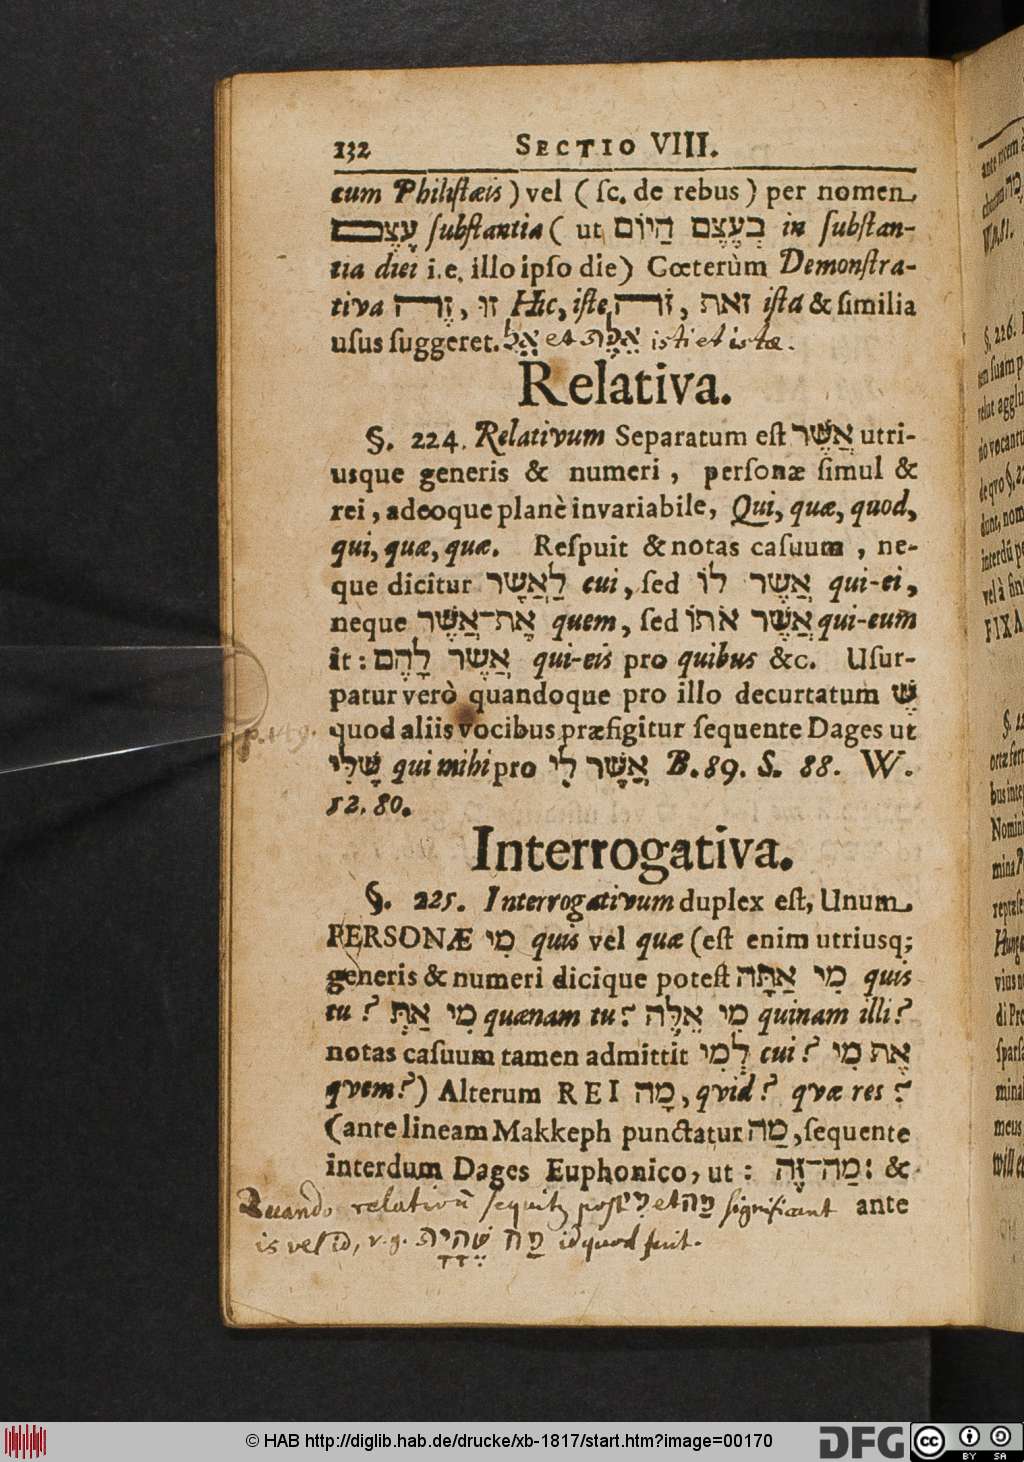 132 SECTIO VIII.
cum Philiſtæis) vel (ſc. de rebus) per nomen
עֶצֶם ſubſtantia (ut בְּעֶצֶם הַיּוֹם in ſubſtan-
tia diei i.e. illo ipſo die) Cœterùm Demonſtra-
tiva זֶה, זוּ Hic, iſte, זֹה, זאת iſta & ſimilia
uſus ſuggeret. אֵל et אֵלֶּה isti et istæ.
Relativa.
§. 224. Relativum Separatum eſt אֲשֶׁר utri-
usque generis & numeri, perſonæ ſimul &
rei, adeoque planè invariabile, Qui, quæ, quod,
qui, quæ, quæ. Reſpuit & notas caſuum, ne-
que dicitur לַאֲשֶׁר cui, ſed אֲשֶׁר לוֹ qui-ei,
neque אֶת־אֲשֶׁר quem, ſed אֲשֶׁר אֹתוֹ qui-eum
it: אֲשֶׁר לָהֶם qui-eis pro quibus &c. Uſur-
patur verò quandoque pro illo decurtatum שֶׁ
quod aliis vocibus præfigitur ſequente Dages ut
שֶׁלִּי qui mihi pro אֲשֶׁר לִי B. 89. S. 88. W.
52. 80.
Interrogativa.
§. 225. Interrogativum duplex eſt, Unum
PERSONÆ מִי quis vel quæ (eſt enim utriusq;
generis & numeri dicique poteſt מִי אַתָּה quis
tu? מִי אַתְּ quænam tu? מִי אֵלֶּה quinam illi?
notas caſuum tamen admittit לְמִי cui? אֶת מִי
qvem?) Alterum REI מָה, qvid? qvæ res?
(ante lineam Makkeph punctatur מַה, ſequente
interdum Dages Euphonico, ut: מַה־זֶּה: &
ante
Quando relativũ sequitʒ post מִי et מַה significant
is vel id, v.g. מַה שֶּׁהָיָה id quod fuit.
© HAB http://diglib.hab.de/drucke/xb-1817/start.htm?image=00170
DFG
cc BY SA